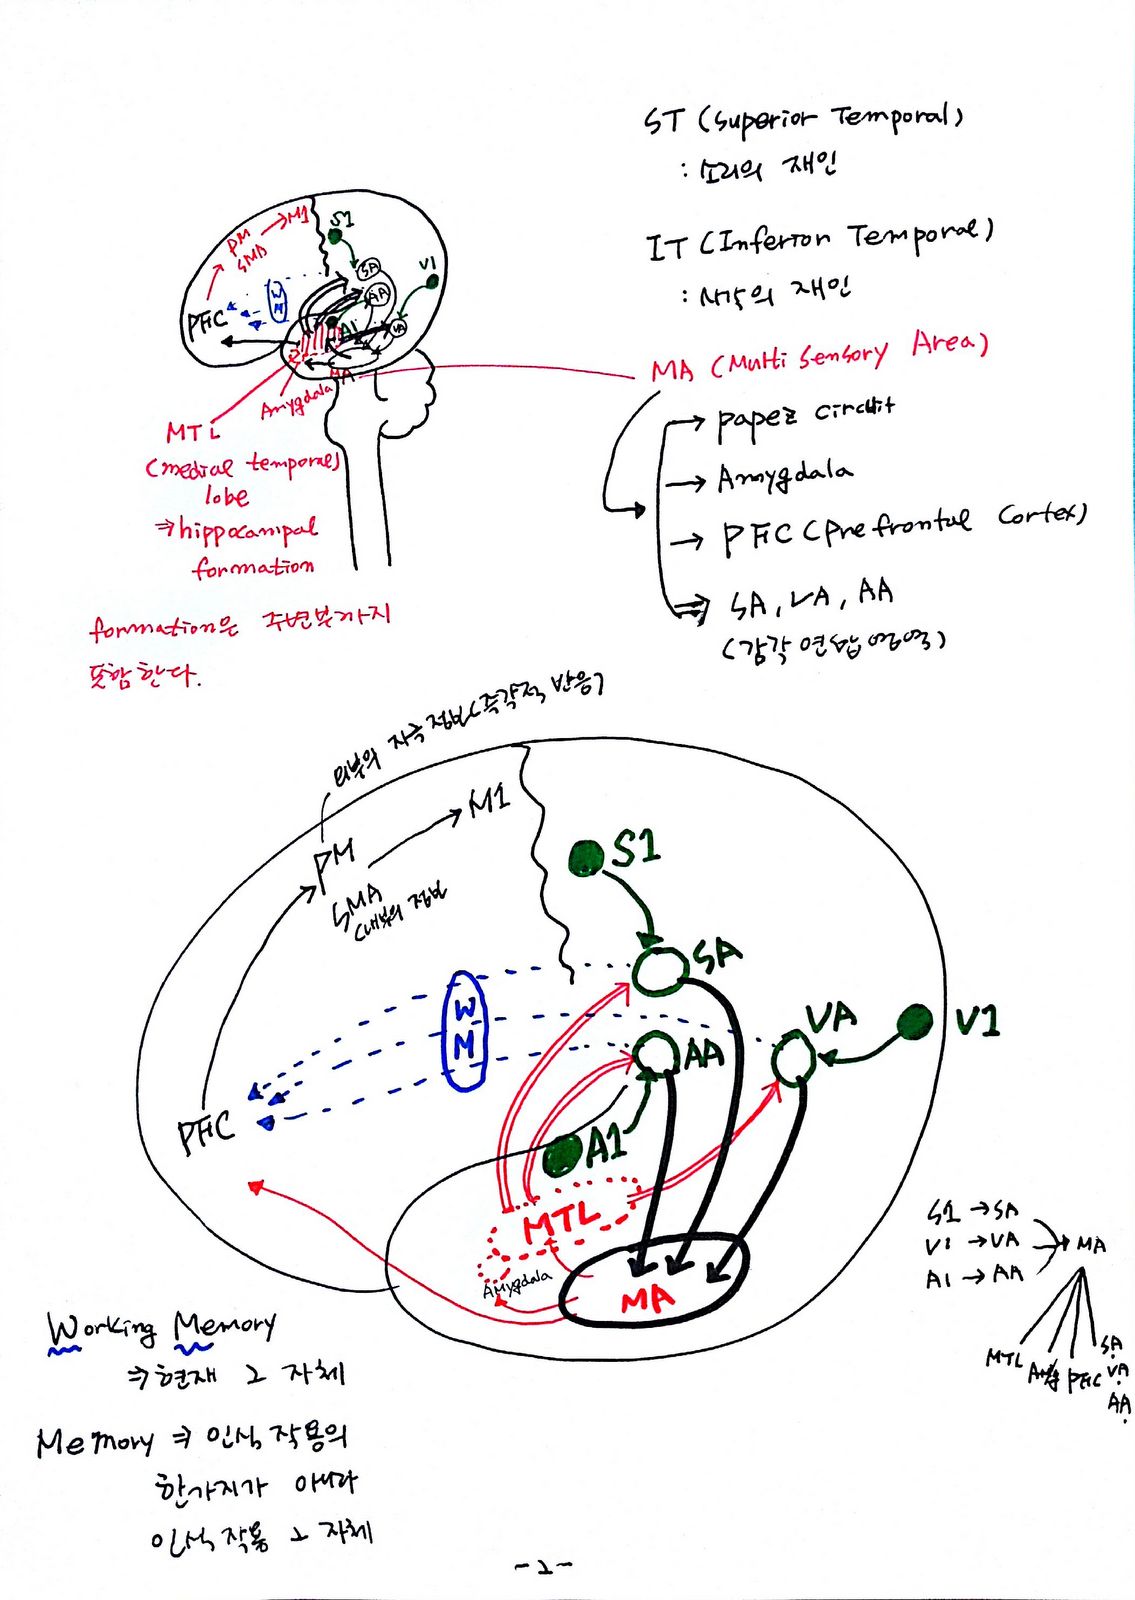 ST (Superior Temporal)
: 소리의 재인
IT (Inferior Temporal)
: 시각의 재인
MA (Multi Sensory Area)
→ papez circuit
→ Amygdala
→ PFC (prefrontal Cortex)
⇒ SA, VA, AA
(감각 연합 영역)
PM
SMA
→ M1
S1
SA
AA
V1
VA
A1
WM
PFC
MA
Amygdala
MTL
(medial temporal)
lobe
⇒ hippocampal
formation
formation은 주변부까지
포함한다.
외부의 자극 정보(즉각적 반응)
PM
M1
SMA
(내부의 정보
S1
SA
WM
AA
VA
V1
PFC
A1
MTL
Amygdala
MA
S1 → SA
V1 → VA → MA
A1 → AA
MTL Amyg PFC SA,
VA,
AA,
Working Memory
⇒ 현재 그 자체
Memory ⇒ 인식 작용의
한가지가 아니라
인식작용 그 자체
-2-